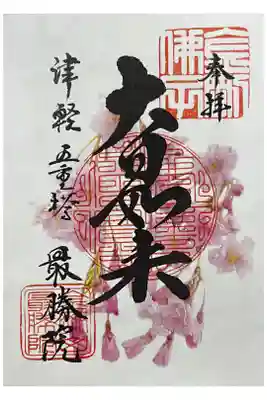 奉拝
大日如来
津軽 五重塔
最勝院